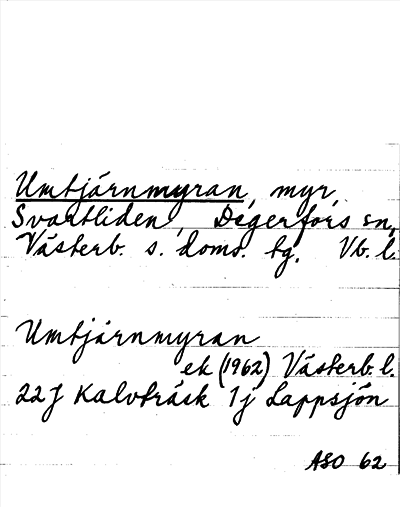 Umtjärnmyran, myr,
Svartliden, Degerfors sn,
Västerb. s. doms. tg. Vb. l.
Umtjärnmyran
ek (1962) Västerb. l.
22J Kalvträsk 1j Lappsjön
ASO 62